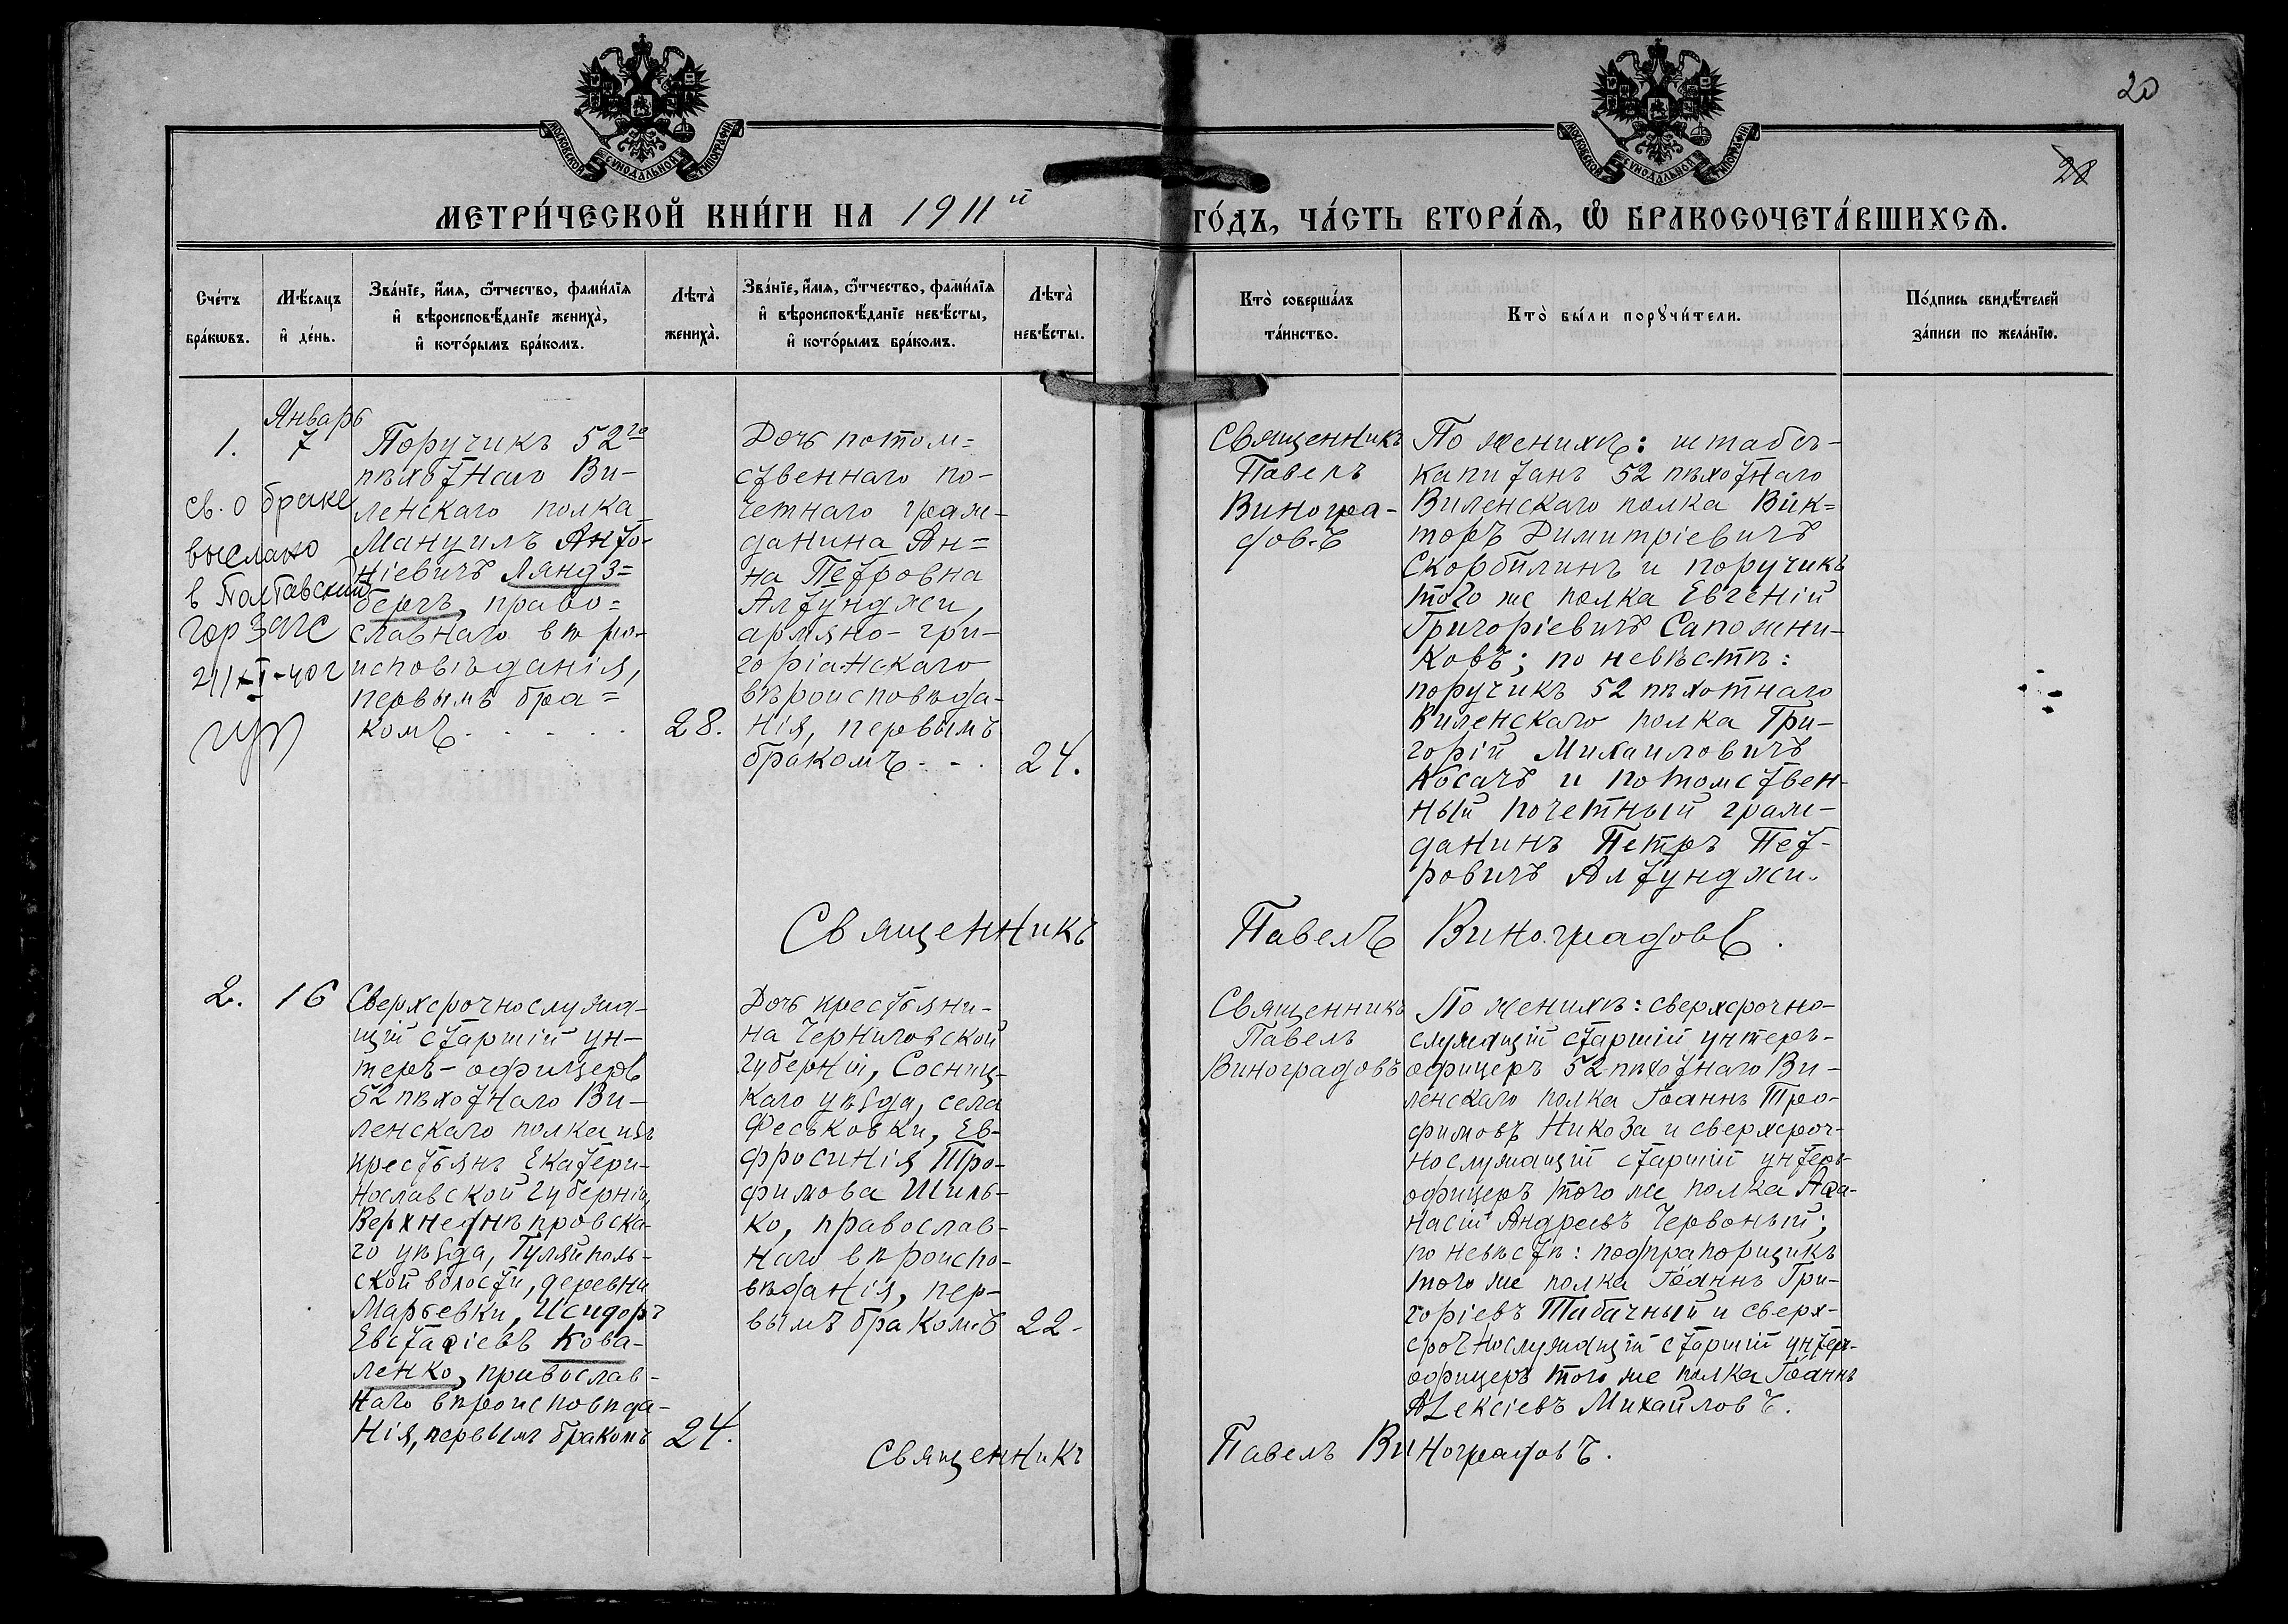 20
28
МОСКОВСКОЙ СѴНОДАЛЬНОЙ ТИПОГРАФІИ
МОСКОВСКОЙ СѴНОДАЛЬНОЙ ТИПОГРАФІИ
МЕТРИ́ЧЕСКОЙ КНИ́ГИ НА 1911й ГО́ДЪ, ЧА́СТЬ ВТОРА́Ѧ, Ѽ БРАКОСОЧЕТА́ВШИХСѦ.
Сче́тъ
бра́кѡвъ.
Мѣ́сяцъ
и҆ де́нь.
Зва́нїе, и҆́мя, ѻ҆́тчество, фами́лїя
и҆ вѣроисповѣ́данїе жениха̀,
и҆ кото́рымъ бра́комъ.
Лѣта̀
жениха̀.
Зва́нїе, и҆́мя, ѻ҆́тчество, фами́лїя
и҆ вѣроисповѣ́данїе невѣ́сты,
и҆ кото́рымъ бра́комъ.
Лѣта̀
невѣ́сты.
Кто̀ соверша́лъ
та́инство.
Кто̀ бы́ли порꙋчи́тели.
По́дпись свидѣ́телей
за́писи по жела́нїю.
1.
Январь
7
св. о браке
выслано
в Полтавский
гор ЗАГС
Поручикъ 52го
пѣхотнаго Ви-
ленскаго полка
Мануилъ Анто-
ніевичъ Ляндз=
бергъ, право=
славнаго вѣро-
исповѣданія,
первымъ бра=
комъ. . . . .
28.
Дочь потом=
ственнаго по-
четнаго граж-
данина Ан=
на Петровна
Алтунджи,
армяно-гри-
горіанскаго
вѣроисповѣда-
нія, первымъ
бракомъ - - .
24.
Священникъ
Павелъ
Виногра-
довъ
По женихѣ: штабсъ-
капитанъ 52 пѣхотнаго
Виленскаго полка Вик=
торъ Димитріевичъ
Скорбилинъ и поручикъ
того же полка Евгеній
Григоріевичъ Сапожни-
ковъ; по невѣстѣ:
поручикъ 52 пѣхотнаго
Виленскаго полка Гри-
горій Михаиловичъ
Косачъ и потомствен-
ный почетный граж-
данинъ Петръ Пет-
ровичъ Алтунджи.
Священникъ Павелъ Виноградовъ.
2.
16
Сверхсрочнослужа-
щій старшій ун-
теръ-офицеръ
52 пѣхотнаго Ви-
ленскаго полка изъ
крестьянъ Екатери-
нославской губерніи,
Верхнеднѣпровска-
го уѣзда, Гуляйполь-
ской волости, деревни
Марьевки, Исидоръ
Евстаѳіевъ Кова-
ленко, православ-
наго вѣроисповѣда-
нія, первымъ бракомъ
24.
Дочь крестьяни-
на Черниговской
губерніи, Сосниц-
каго уѣзда, села
Феськовки, Ев-
фросинія Тро-
фимова Шиль-
ко, православ-
наго вѣроиспо-
вѣданія, пер-
вымъ бракомъ
22-
Священникъ
Павелъ
Виноградовъ
По женихѣ: сверхсрочно-
служащій старшій унтеръ-
офицеръ 52 пѣхотнаго Ви-
ленскаго полка Іоаннъ Тро-
фимовъ Никоза и сверхсроч-
нослужащій старшій унтеръ-
офицеръ того же полка Аѳа-
насій Андреевъ Червоный;
по невѣстѣ: подпрапорщикъ
того же полка Іоаннъ Гри-
горіевъ Табачный и сверх-
срочнослужащій старшій унтеръ-
офицеръ того же полка Іоаннъ
Алексіевъ Михайловъ.
Священникъ Павелъ Виноградовъ.